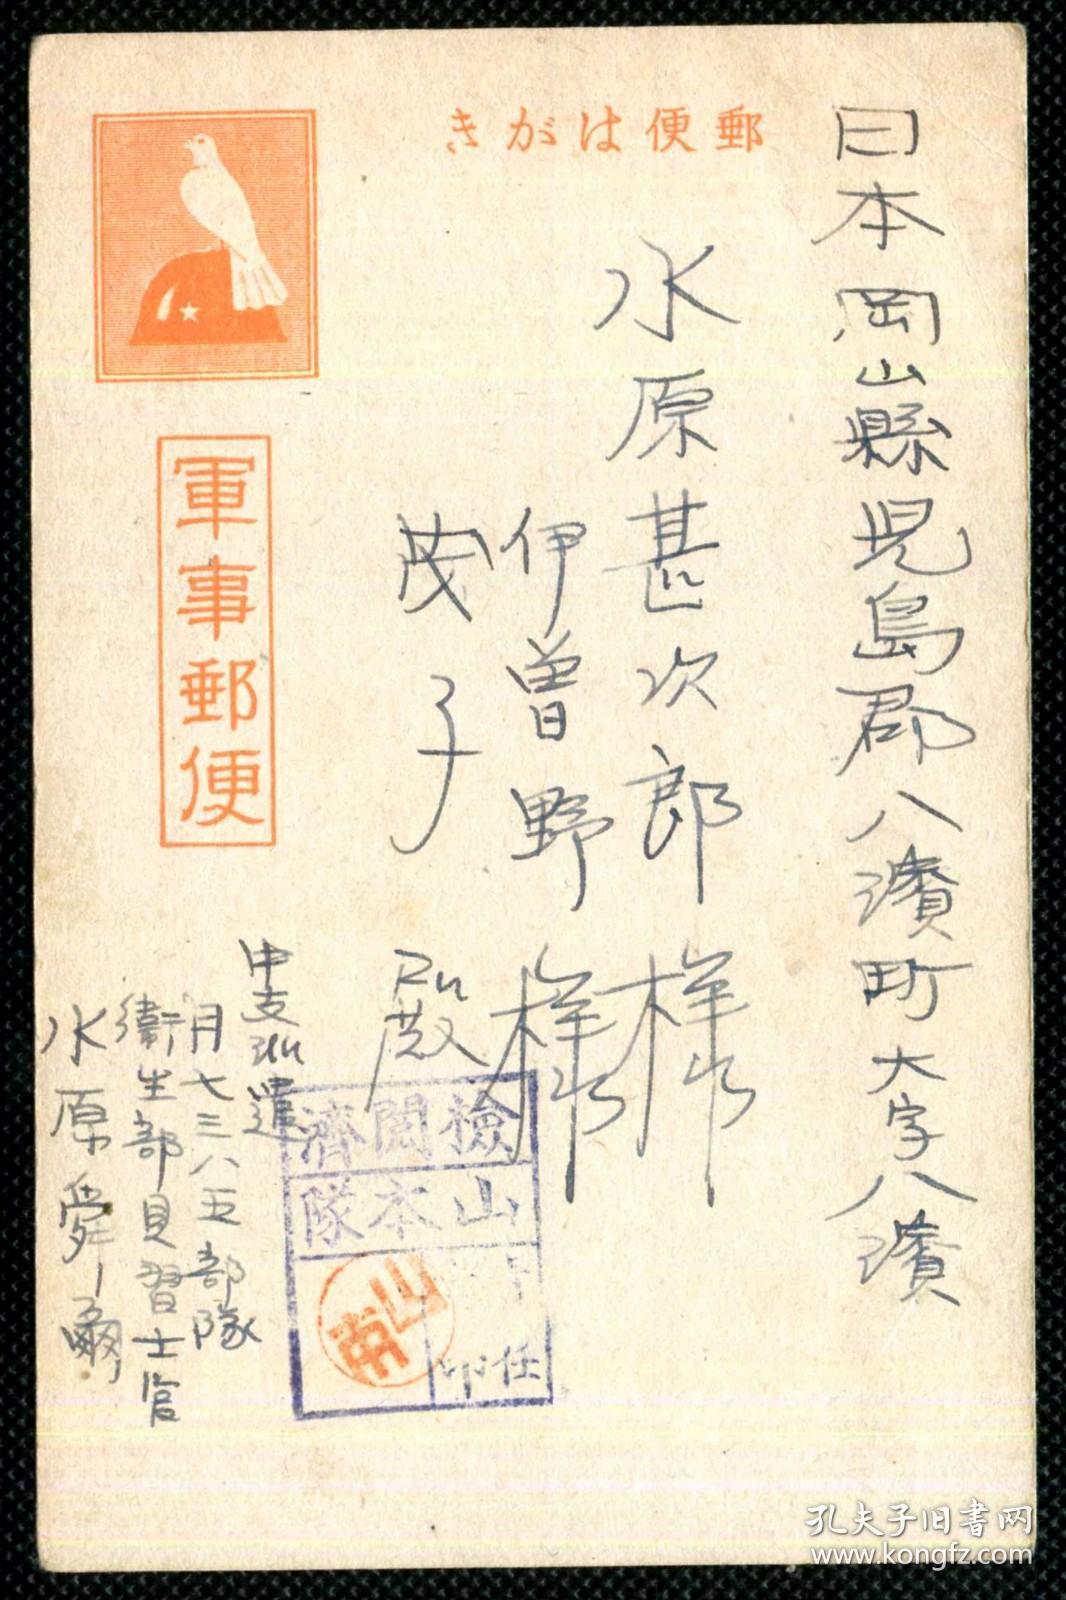 郵便はがき
日本岡山縣児島郡八濱町大字八濱
水原甚次郎様
伊曽野様
茂子殿
軍事郵便
中支派遣
月七三八五部隊
衛生部見習士官
水原舜爾
檢閲濟
山本隊
任印
孔夫子旧书网
www.kongfz.com